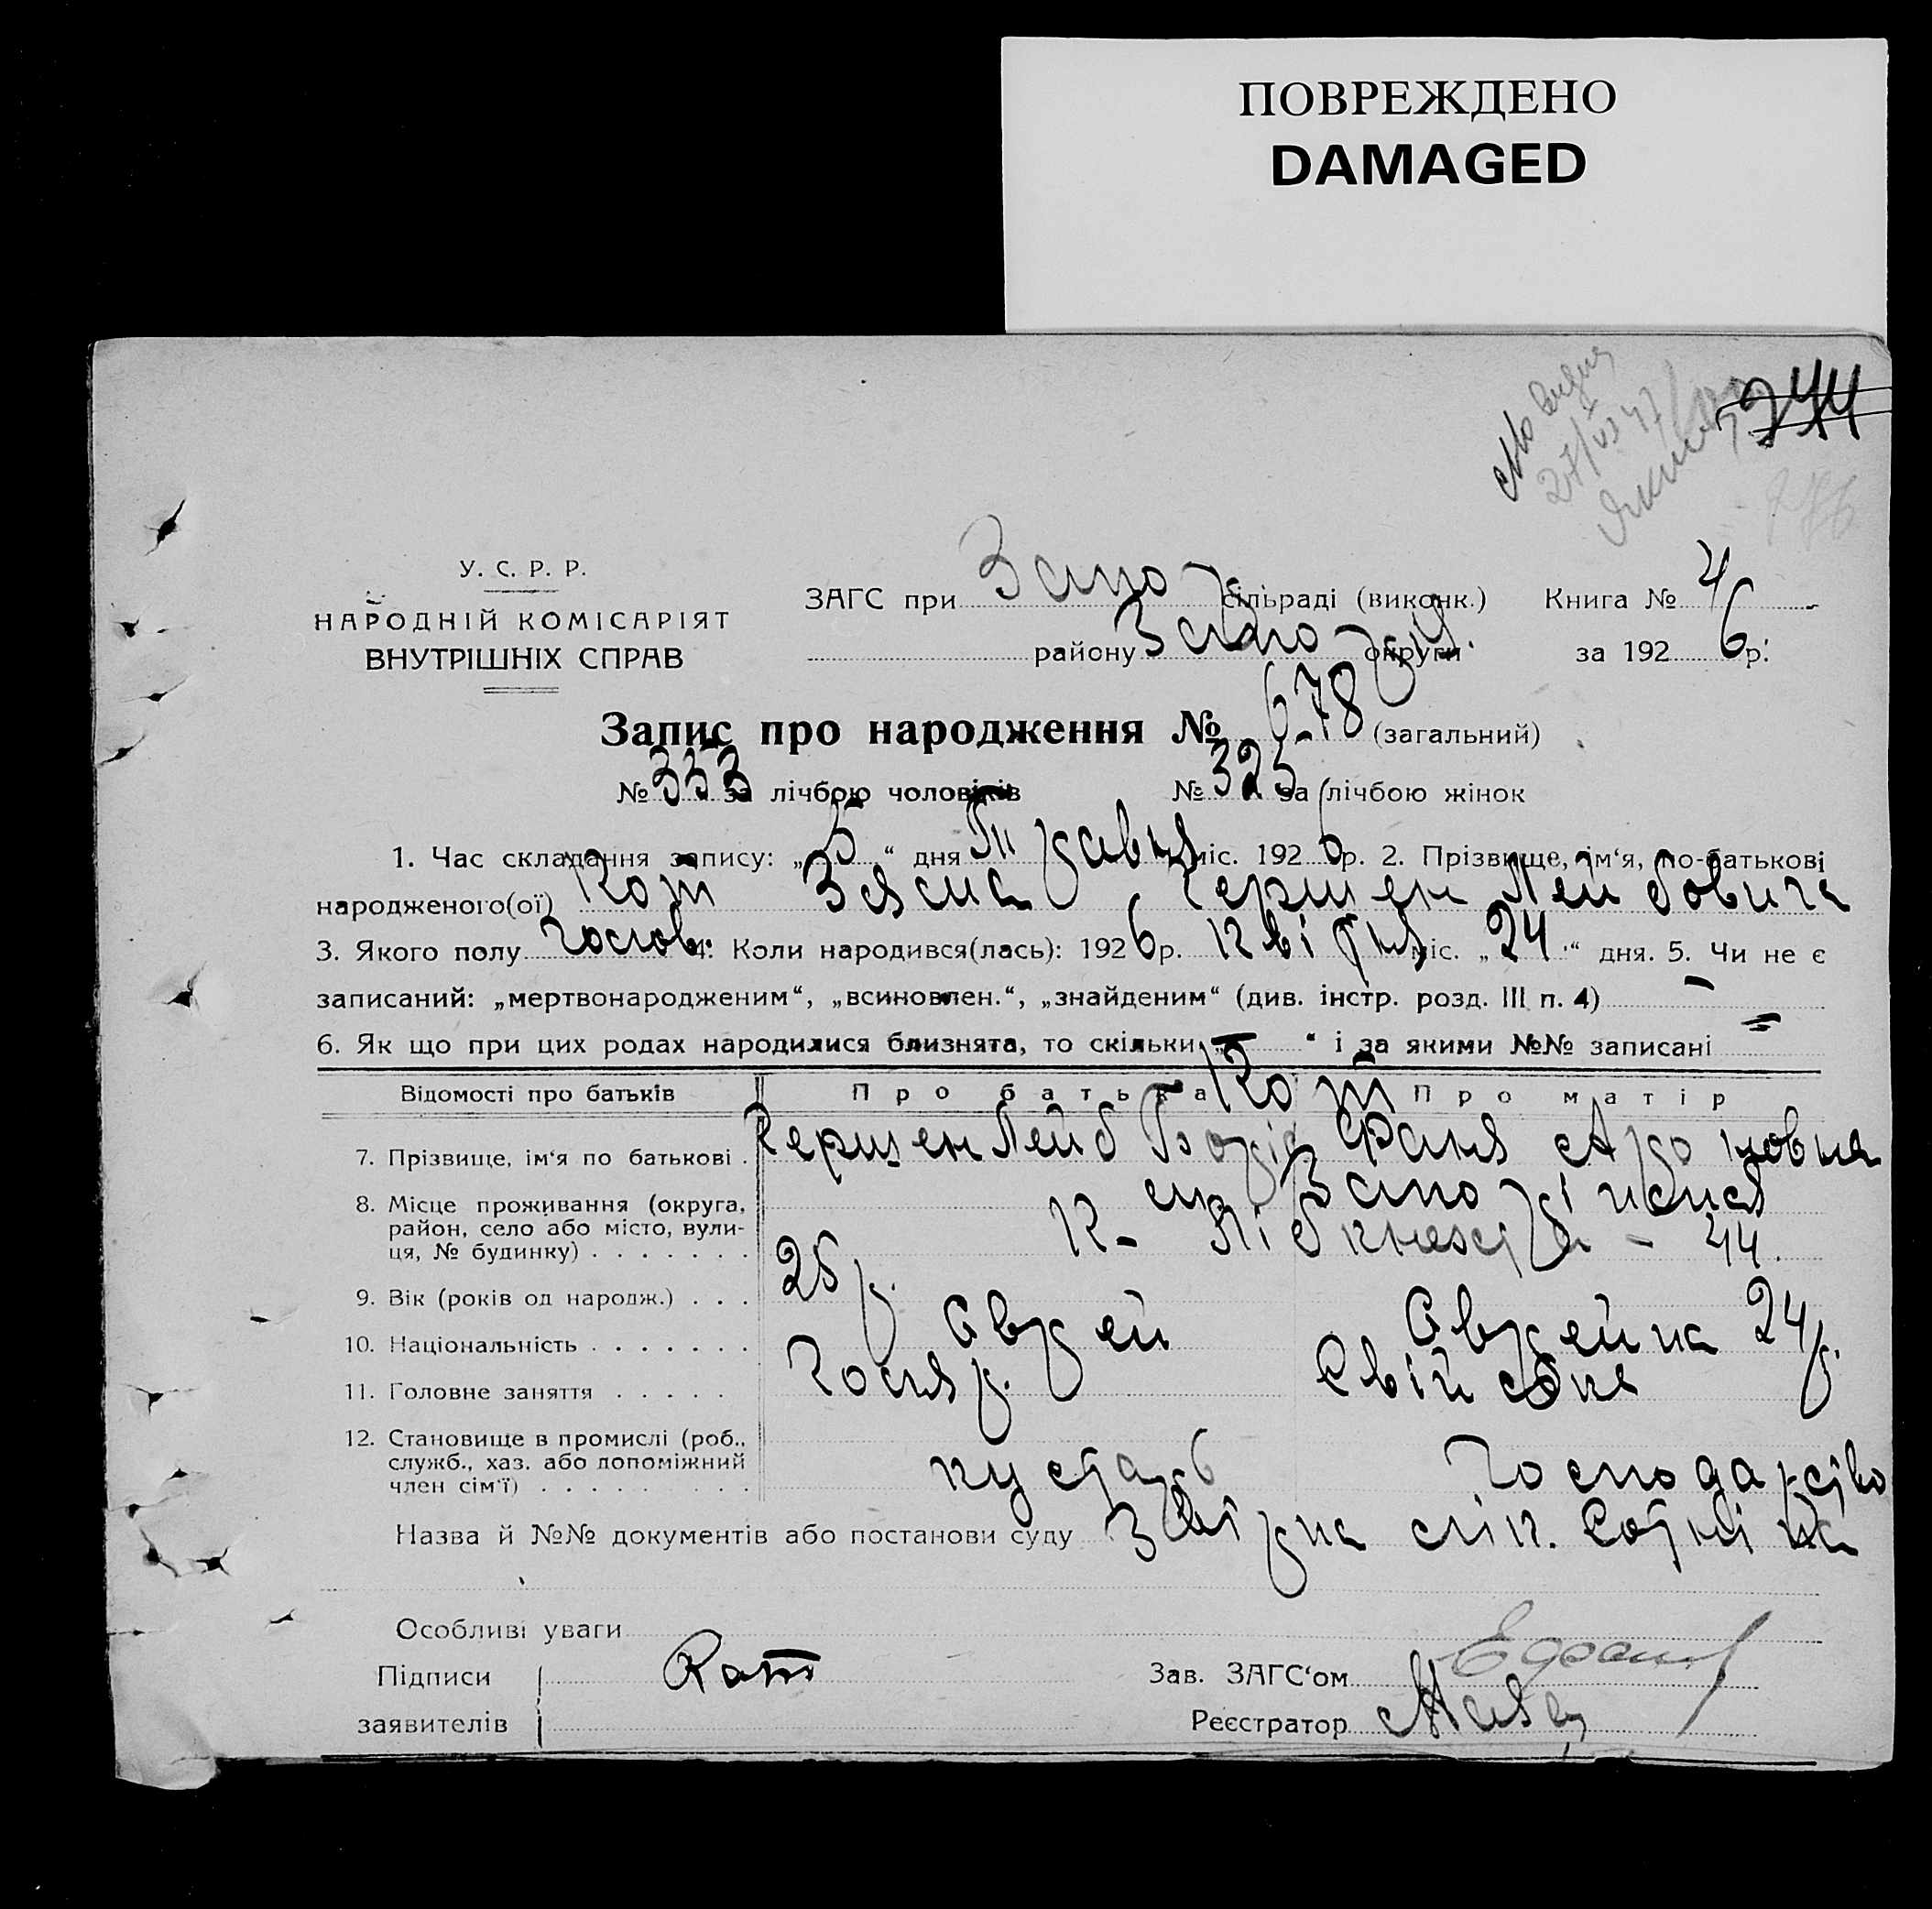 ПОВРЕЖДЕНО
DAMAGED
244
У. С. Р. Р.
НАРОДНІЙ КОМІСАРІЯТ
ВНУТРІШНІХ СПРАВ
ЗАГС при Запор сільраді (виконк.) Книга № 4
району Запор округи за 1926 р.
Запис про народження № 678 (загальний)
№ 353 за лічбою чоловіків № 325 за лічбою жінок
1. Час складання запису: „5“ дня Травня міс. 1926 р. 2. Прізвище, ім‘я, по-батькові
народженого(ої) Кот Зяма Гершен Лейбовича
3. Якого полу чолов. 4. Коли народився(лась): 1926 р. квітня міс. „24“ дня. 5. Чи не є
записаний: „мертвонародженим“, „всиновлен.“, „знайденим“ (див. інстр. розд. III п. 4) —
6. Як що при цих родах народилися близнята, то скільки „—“ і за якими №№ записані =
Відомості про батьків Про батька Кот Про матір
7. Прізвище, ім‘я по батькові . Гершен Лейб Фаня Ароновна
8. Місце проживання (округа, район, село або місто, вулиця, № будинку) . . . . . . . м Запоріжжя
К- Лібкнехта - 44.
9. Вік (років од народж.) . . . 25 р. 24 р.
10. Національність . . . . . . . Єврей Єврейка
11. Головне заняття . . . . . Свій
12. Становище в промислі (роб., служб., хаз. або допоміжний член сім‘ї) . . . . . . . . . кустарь господарство
Назва й №№ документів або постанови суду
Особливі уваги
Підписи заявителів Кот
Зав. ЗАГС‘ом
Реєстратор